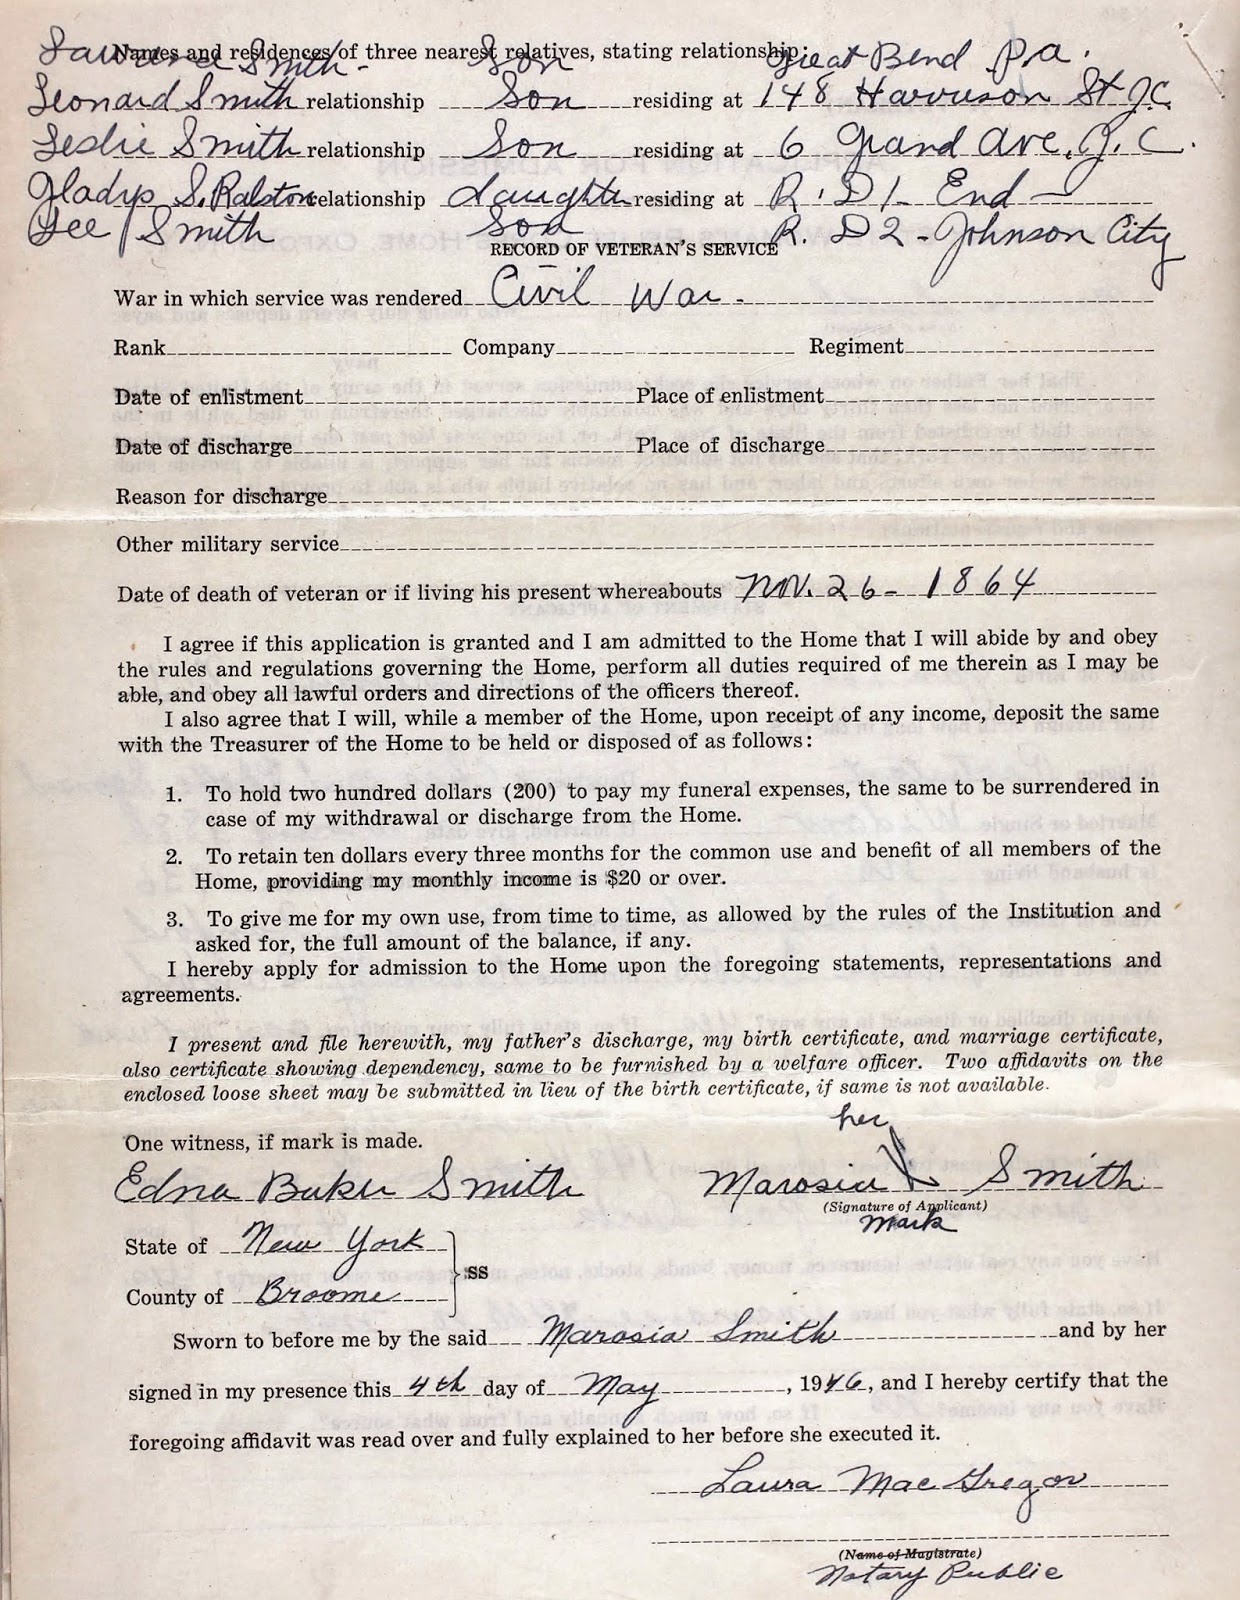 Names and residences of three nearest relatives, stating relationship:
Lawrence Smith - Son Great Bend Pa.
Leonard Smith relationship Son residing at 148 Harrison St J.C.
Leslie Smith relationship Son residing at 6 Grand Ave. J. C.
Gladys S. Ralston relationship daughter residing at R. D 1 - End -
Lee Smith Son R. D 2 - Johnson City
RECORD OF VETERAN'S SERVICE
War in which service was rendered Civil War -
Rank Company Regiment
Date of enlistment Place of enlistment
Date of discharge Place of discharge
Reason for discharge
Other military service
Date of death of veteran or if living his present whereabouts Nov. 26 - 1864
I agree if this application is granted and I am admitted to the Home that I will abide by and obey
the rules and regulations governing the Home, perform all duties required of me therein as I may be
able, and obey all lawful orders and directions of the officers thereof.
I also agree that I will, while a member of the Home, upon receipt of any income, deposit the same
with the Treasurer of the Home to be held or disposed of as follows:
1. To hold two hundred dollars (200) to pay my funeral expenses, the same to be surrendered in
case of my withdrawal or discharge from the Home.
2. To retain ten dollars every three months for the common use and benefit of all members of the
Home, providing my monthly income is $20 or over.
3. To give me for my own use, from time to time, as allowed by the rules of the Institution and
asked for, the full amount of the balance, if any.
I hereby apply for admission to the Home upon the foregoing statements, representations and
agreements.
I present and file herewith, my father's discharge, my birth certificate, and marriage certificate,
also certificate showing dependency, same to be furnished by a welfare officer. Two affidavits on the
enclosed loose sheet may be submitted in lieu of the birth certificate, if same is not available.
her
One witness, if mark is made.
Edna Baker Smith Marosia X Smith
(Signature of Applicant)
mark
State of New York
SS
County of Broome
Sworn to before me by the said Marosia Smith and by her
signed in my presence this 4th day of May, 1946, and I hereby certify that the
foregoing affidavit was read over and fully explained to her before she executed it.
Laura MacGregor
(Name of Magistrate)
Notary Public